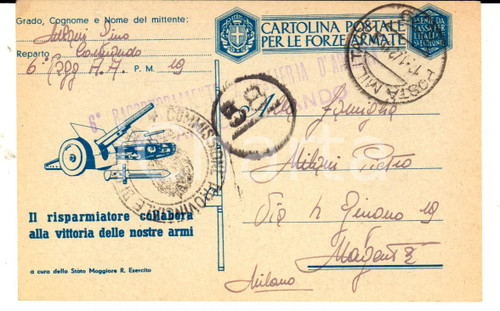 Grado, Cognome e Nome del mittente:
Milani Pino
Reparto Comando
6° Regg A.A. P. M. 19
CARTOLINA POSTALE
PER LE FORZE ARMATE
ESENTE DA
TASSA PER
L'ITALIA
POSTA MILITARE
6° RAGGRUPPAMENTO ARTIGLIERIA D'ARMATA
COMANDO
COMMISSIONE PROVINCIALE DI
Alla Famiglia
Milani Pietro
Via
19
Magenta
Milano
Il risparmiatore collabora
alla vittoria delle nostre armi
a cura dello Stato Maggiore R. Esercito